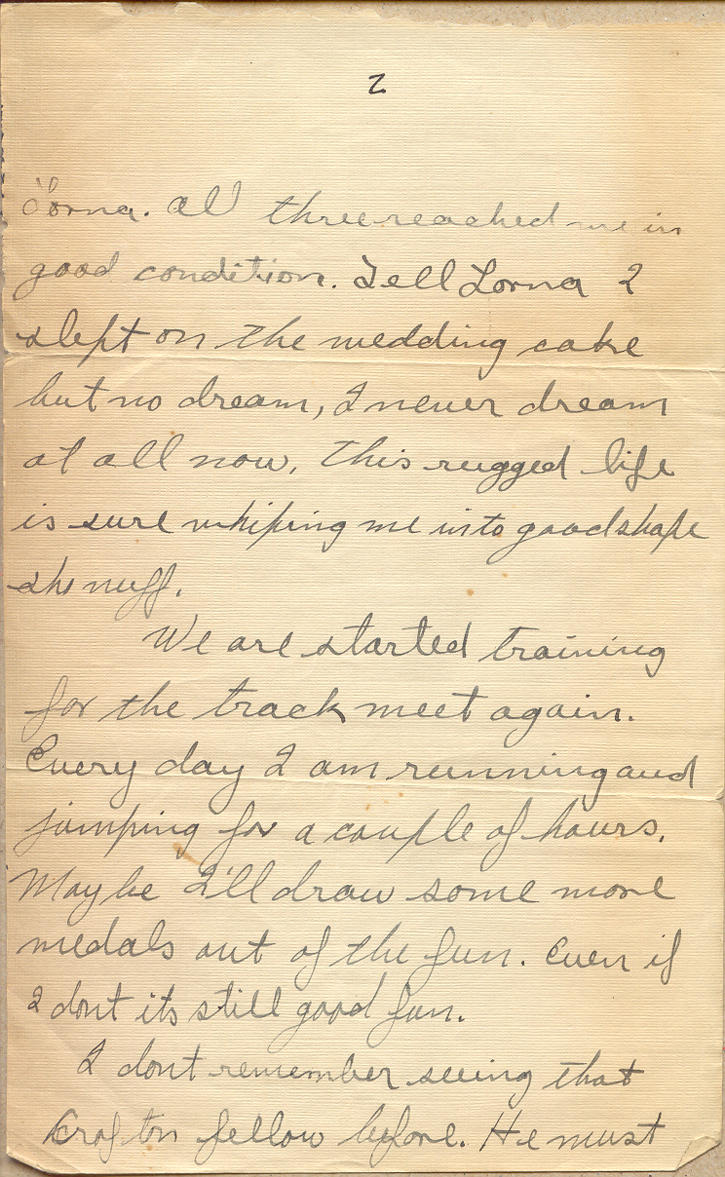 2
Lorna. All three reached me in
good condition. Tell Lorna I
slept on the wedding cake
but no dream, I never dream
at all now. This rugged life
is sure whiping me into good shape
sho nuff.
We are started training
for the track meet again.
Every day I am running and
jumping for a couple of hours.
Maybe I'll draw some more
medals out of the fun. Even if
I dont its still good fun.
I dont remember seeing that
Crofton fellow before. He must